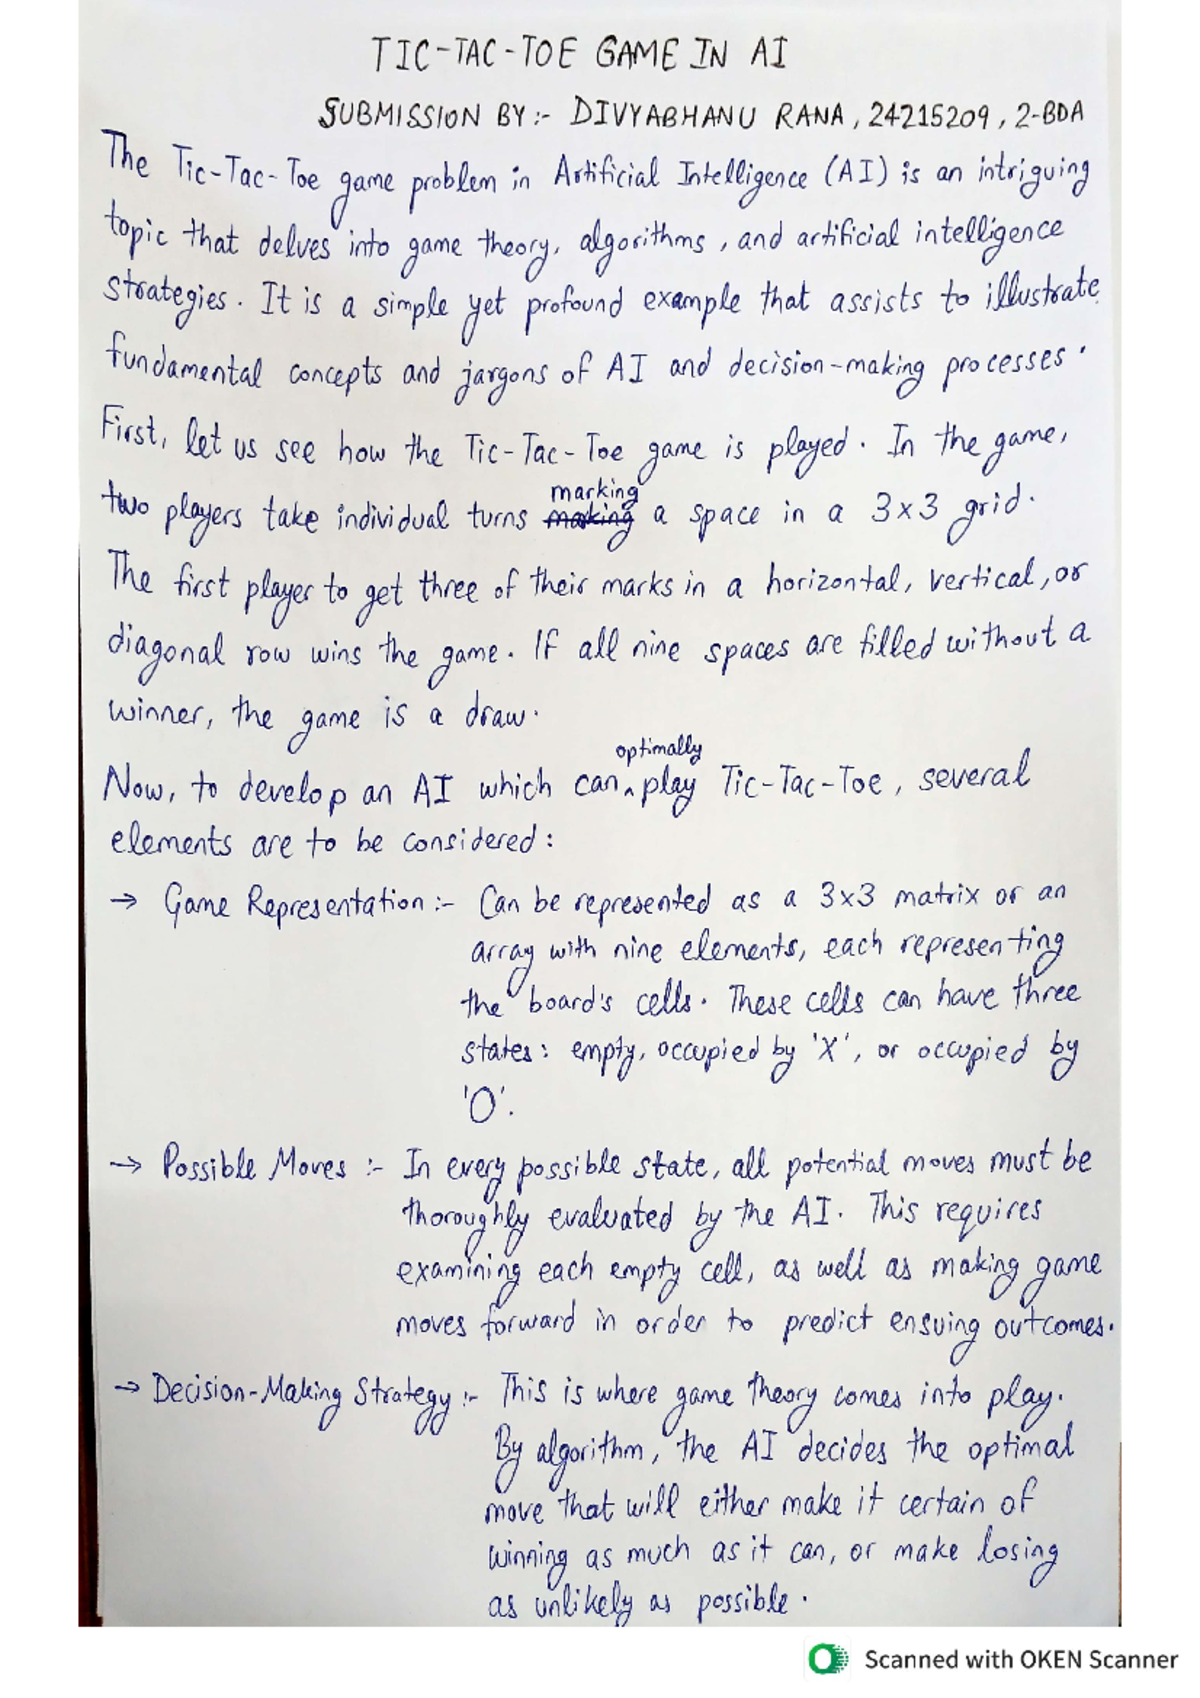 TIC-TAC-TOE GAME IN AI
SUBMISSION BY:- DIVYABHANU RANA, 24215209, 2-BDA
The Tic-Tac-Toe game problem in Artificial Intelligence (AI) is an intriguing
topic that delves into game theory, algorithms, and artificial intelligence
strategies. It is a simple yet profound example that assists to illustrate
fundamental concepts and jargons of AI and decision-making processes.
First, let us see how the Tic-Tac-Toe game is played. In the game,
marking
two players take individual turns making a space in a 3x3 grid.
The first player to get three of their marks in a horizontal, vertical, or
diagonal row wins the game. If all nine spaces are filled without a
winner, the game is a draw.
optimally
Now, to develop an AI which can ^ play Tic-Tac-Toe, several
elements are to be considered:
→ Game Representation :- Can be represented as a 3x3 matrix or an
array with nine elements, each representing
the board's cells. These cells can have three
states: empty, occupied by 'X', or occupied by
'O'.
→ Possible Moves :- In every possible state, all potential moves must be
thoroughly evaluated by the AI. This requires
examining each empty cell, as well as making game
moves forward in order to predict ensuing outcomes.
→ Decision-Making Strategy :- This is where game theory comes into play.
By algorithm, the AI decides the optimal
move that will either make it certain of
winning as much as it can, or make losing
as unlikely as possible.
Scanned with OKEN Scanner